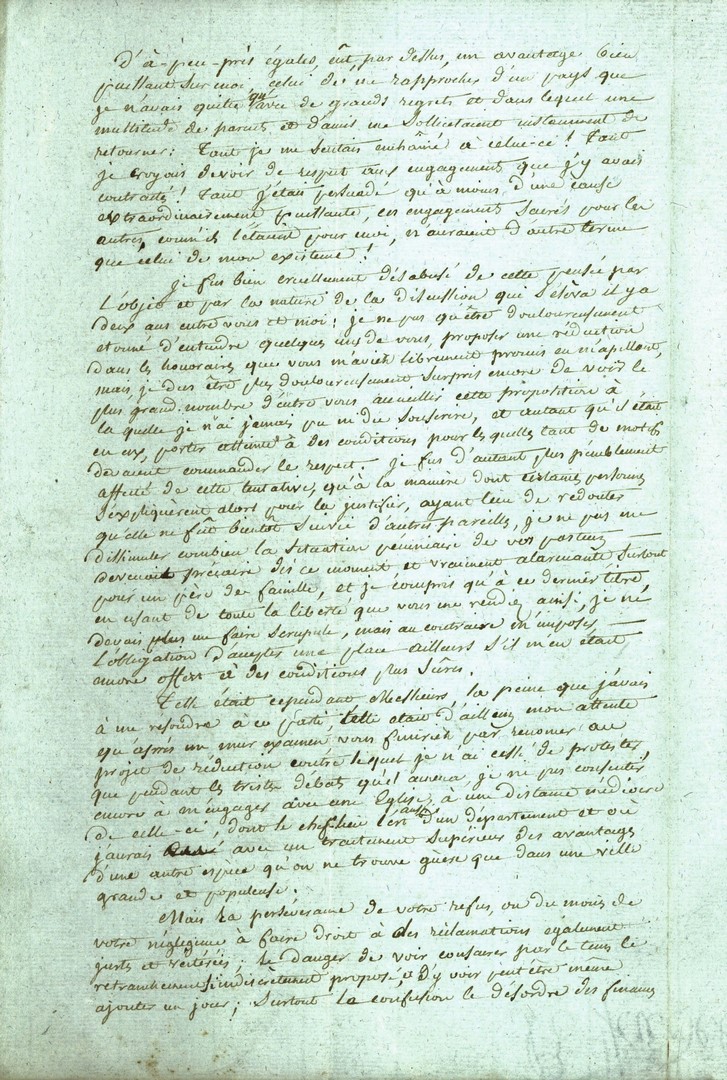 D'à-peu-près égales, eût, par dessus, un avantage bien
puissant sur moi, celui de me rapprocher d'un pays que
je n'avais quitté qu'avec de grands regrets et dans lequel une
multitude de parents et d'amis me sollicitaient instamment de
retourner: Tant je me sentais enchaîné à celui-ce! Tant
je croyais devoir de respect aux engagements que j'y avais
contractés! Tant j'étais persuadé qu'à moins d'une cause
extraordinairement puissante, ces engagements sacrés pour les
autres, comm'ils l'étaient pour moi, n'auraient d'autre terme
que celui de mon existence!
Je fus bien cruellement désabusé de cette pensée par
L'objet et par la nature de la discussion qui s'éléva il y a
deux ans entre vous et moi: je ne pus qu'être douloureusement
etonné d'entendre quelques uns de vous, proposer une réduction
dans les honoraires que vous m'aviez librement promis en m'apellant,
mais je dus être plus douloureusement surpris encore de voir le
plus grand nombre d'entre vous accueillir cette proposition à
la quelle je n'ai jamais pu ni du souscrire, et autant qu'il était
en eux, porter atteinte à des conditions pour lesquelles tant de motifs
devaient commander le respect. Je fus d'autant plus péniblement
affecté de cette tentative, qu'à la manière dont certaines personnes
s'expliquerent alors pour la justifier, ayant lieu de redouter
qu'elle ne fût bientôt suivie d'autres pareilles, je ne pus me
dissimuler combien la situation pécuniaire de vos pasteurs
devenait précaire dès ce moment et vraiment alarmante surtout
pour un père de famille, et je compris qu'à ce dernier titre,
en usant de toute la liberté que vous me rendiez ainsi, je ne
devais plus me faire scrupule, mais au contraire m'imposer
L'obligation d'accepter une place ailleurs s'il m'en était
encore offert à des conditions plus sûres.
Telle était cependant Messieurs, la peine que j'avais
à me résoudre à ce parti, telle était d'ailleurs mon attente
qu'après un mur examen vous finiriez par renoncer au
projet de réduction contre lequel je n'ai cessé de protester,
que pendant les tristes débats qu'il amena, je ne pus consentir
encore à m'engager avec une Eglise, à une distance médiocre
de celle-ci, dont le chef-lieu l'est aussi d'un département et où
j'aurais avec un traitement supérieur des avantages
d'une autre espèce qu'on ne trouve guère que dans une ville
grande et populeuse.
Mais la persévérance de votre refus, ou du moins de
votre négligence à faire droit à des réclamations également
justes et réitérées; le danger de voir consacrer par le tems le
retranchement si indiscrètement proposé, d'y voir peut être même
ajouter un jour; surtout la confusion le désordre des finances